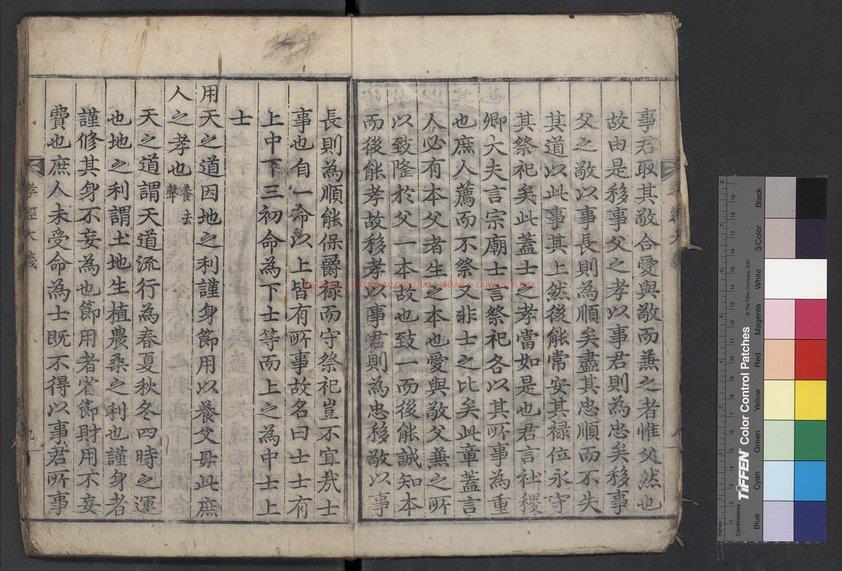 事君取其敬合愛與敬而兼之者惟父然也
故由是移事父之孝以事君則為忠矣移事
父之敬以事長則為順矣盡其忠順而不失
其道以此事其上然後能常安其禄位永守
其祭祀矣此蓋士之孝當如是也君言社稷
卿大夫言宗廟士言祭祀各以其所事為重
也庶人薦而不祭又非士之比矣此章蓋言
人必有本父者生之本也愛與敬父兼之所
以致隆於父一本故也致一而後能誠知本
而後能孝故移孝以事君則為忠移敬以事
長則為順能保爵禄而守祭祀豈不宜㢤士
事也自一命以上皆有所事故名曰士士有
上中下三初命為下士等而上之為中士上
士
用天之道因地之利謹身節用以養父母此庶
人之孝也養去聲
天之道謂天道流行為春夏秋冬四時之運
也地之利謂土地生植農桑之利也謹身者
謹修其身不妄為也節用者省節財用不妄
費也庶人未受命為士既不得以事君所事
孝經大義
九
TIFFEN Color Control Patches
© The Tiffen Company, 2007
Centimetres
Blue
Cyan
Green
Yellow
Red
Magenta
White
3/Color
Black